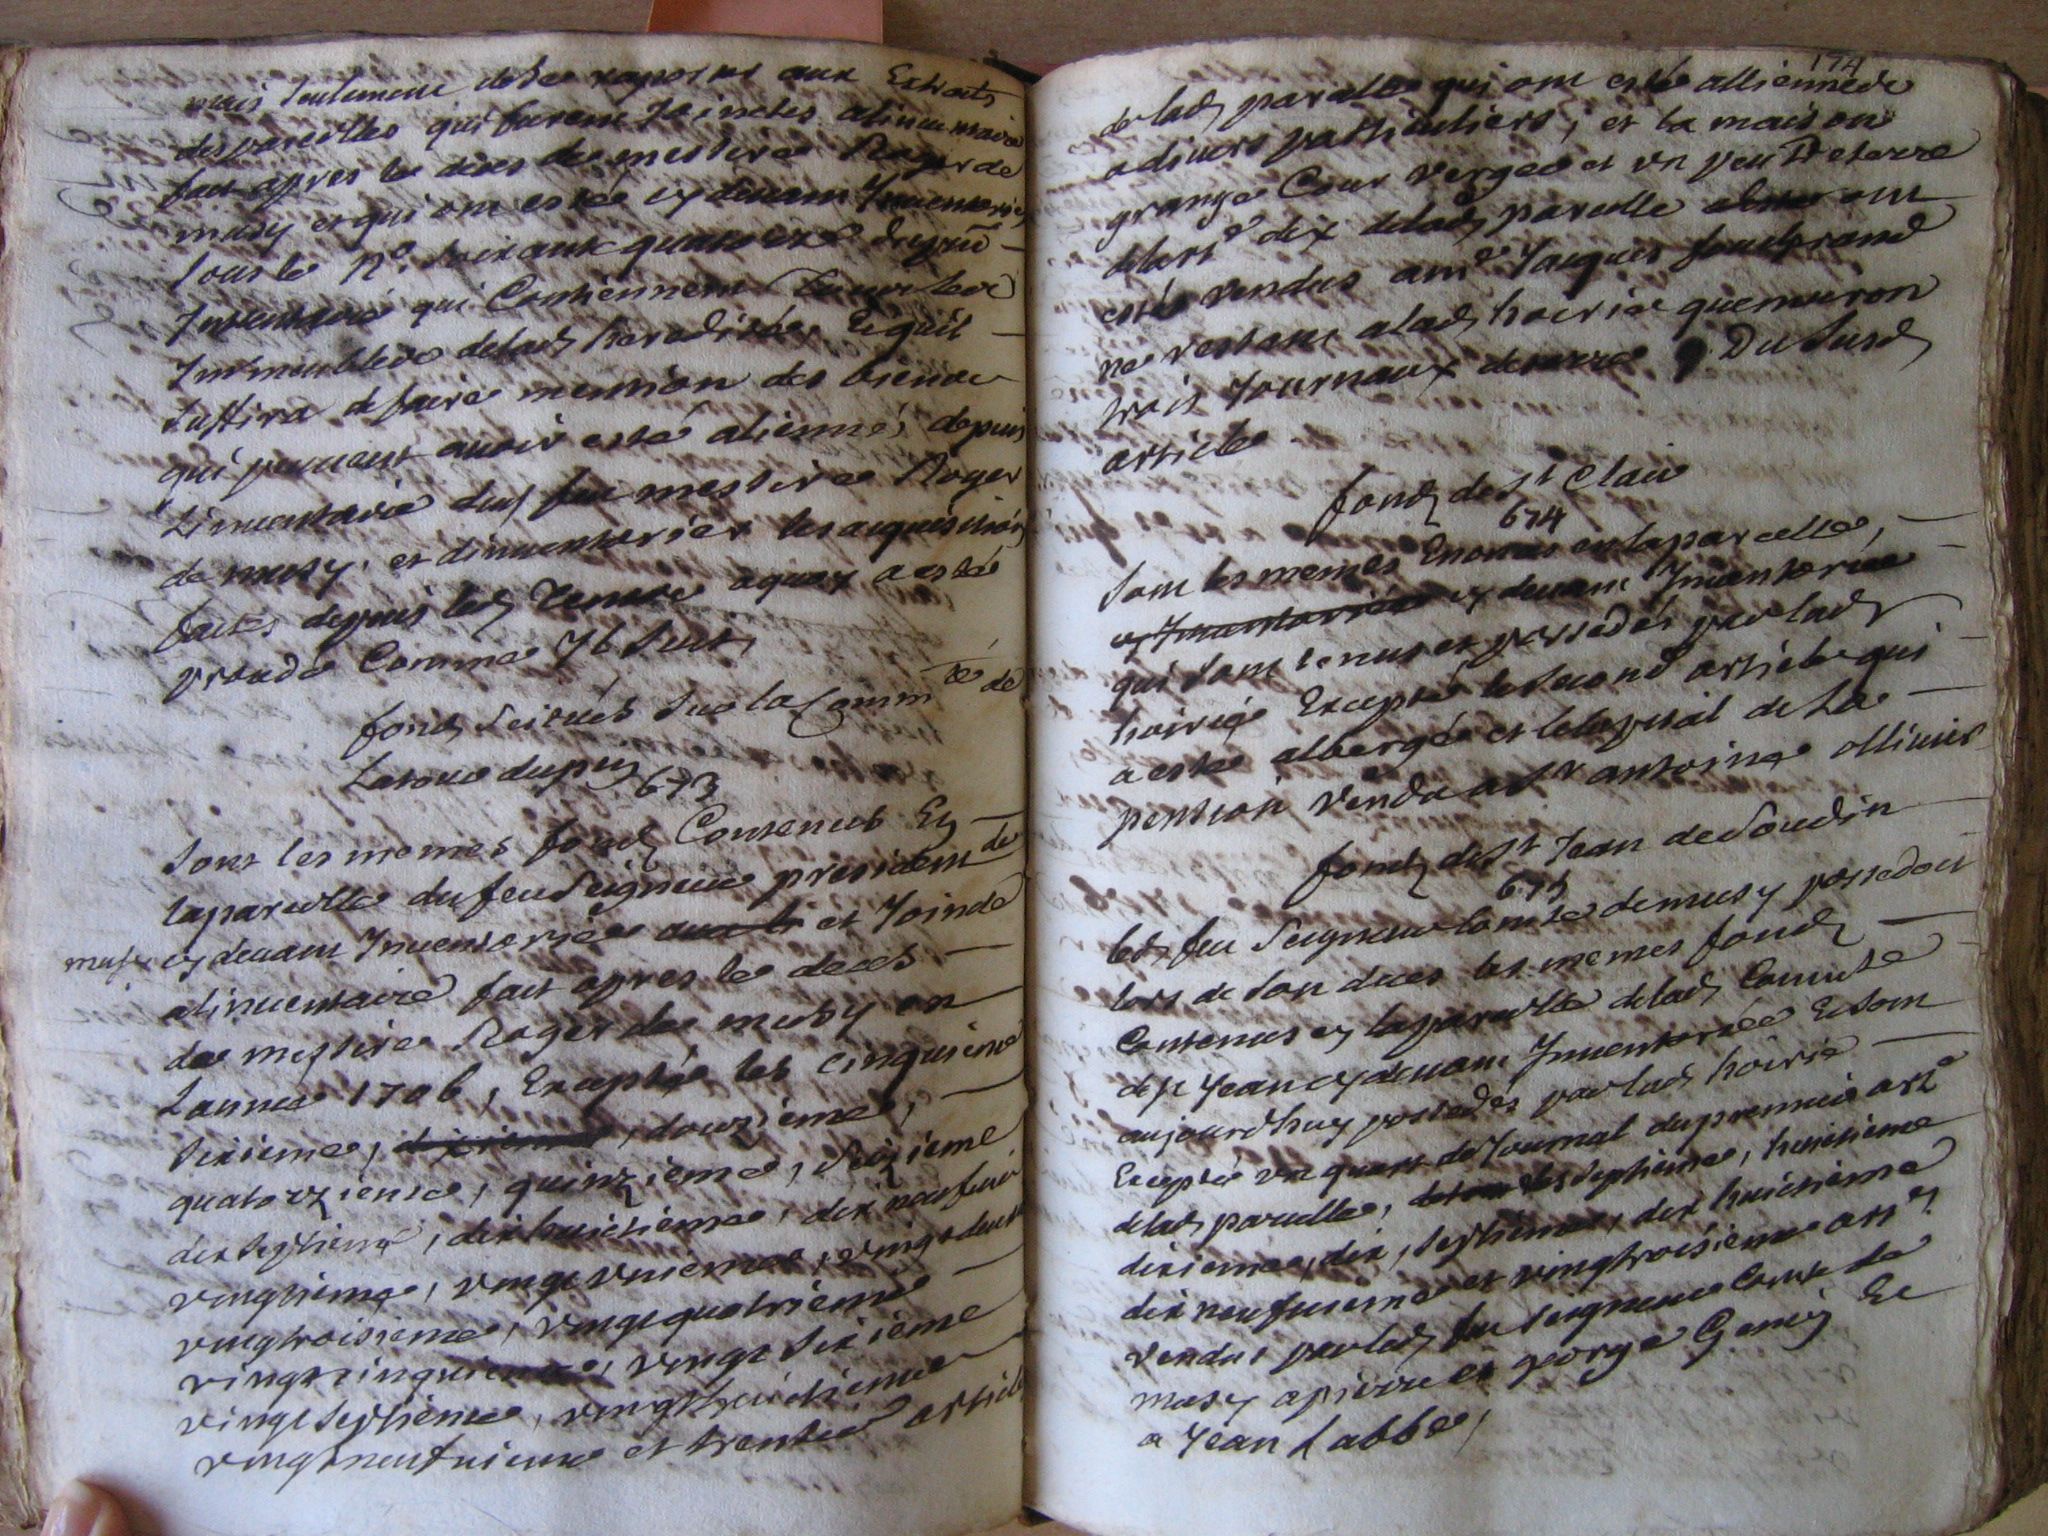 mais seulement de se raporter aux Extraits
des parcelles qui furent Jointes alinventaire
fait apres le deces de messire Roger de
musy et qui ont esté cy devant Inventoriés
sous le n.º soixante quatorze du pnt
Inventaire qui Contiennent tous les
Immeubles de lad heredité, Et quil
suffira de faire mention des biens
qui peuvent avoir esté aliennés depuis
Linventaire dud feu messire Roger
de musy, et dinventorier les acquisitions
faites depuis led temps aquoy a esté
procedé Comme Il suit,
fonds scitués sur la Comm.té de
Latour dupin
673
Sont les memes fonds Contenus En
la parcelle du feu Seigneur president de
musy cy devant Inventoriée et Jointe
alinventaire fait apres le deces
de messire Roger de musy en
Lannée 1706, Excepté les cinquieme
sixieme, dixieme, douzieme,
quatorzieme, quinzieme, seizieme
dix septieme, dixhuictieme, dix neufvieme
vingtieme, vingt unieme, vingt deux
vingtroisieme, vingt quatrieme
vingt cinquieme, vingt sixieme
vingt septieme, vingt huictieme
vingt neufvieme et trentie article
174
de lad parcelle qui ont esté alliennés
a divers particuliers, et la maison
grange Cour verger et un peu De terre
de lart.e dix de lad parcelle ont
esté vendus a m.e Jacques
ne restant a lad hoirie quenviron
trois Journaux de terre Du susd
article
fonds de St Clair
674
Sont les memes Enoncés en la parcelle,
cy Inventoriée cy devant Inventoriée
qui sont tenus et possedés par lad
hoirie Excepté le second article qui
a esté albergé et le capital de La
pension vendu a Sr antoine ollivier
fonds de St Jean de Soudin
675
led feu Seigneur Comte de musy possedoit
lors de son deces les memes fonds
Contenus en la parcelle de lad Comuté
de St Jean cy devant Inventoriée Et sont
aujourdhuy possedés par lad hoirie
Excepté un quart de Journal du premier art.e
de lad parcelle, les septieme, huictieme
dixieme, dix, septieme, dix huictieme
dix neufvieme et vingtroisieme art.es
vendus par led feu Seigneur Comte de
musy a pierre et george Et
a Jean Labbe,